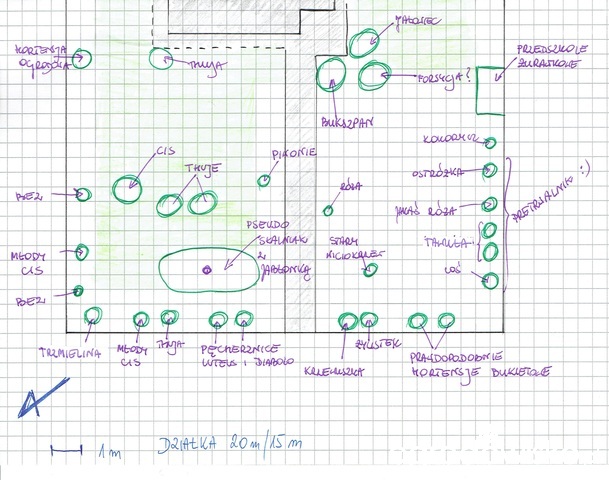 HORTENSJA
OGRODOWA
THUJA
JAŁOWIEC
FORSYCJA?
BUKSZPAN
PRZEDSZKOLE
ŻURAWKOWE
KOKORYCZ
OSTRÓŻKA
JAKAŚ RÓŻA
TAWUŁA
COŚ
PRETRWALNIK :)
CIS
THUJE
PIWONIE
RÓŻA
BEZ
MŁODY
CIS
BEZ
PSEUDO
SKALNIAK
Z
JABŁONKĄ
STARY
WICIOKRZEW
TRZMIELINA
MŁODY
CIS
THUJA
PĘCHERZNICE
LUTEUS I DIABOLO
KRZEWUSZKA
ŻYLISTEK
PRAWDOPODOBNIE
HORTENSJE BUKIETOWE
1m
DZIAŁKA 20m/15m